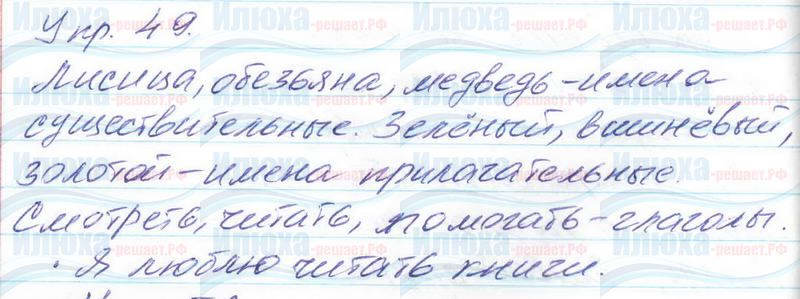 Упр. 49.
Лисица, обезьяна, медведь – имена
существительные. Зелёный, вишнёвый,
золотой – имена прилагательные.
Смотреть, читать, помогать – глаголы.
• Я люблю читать книги.